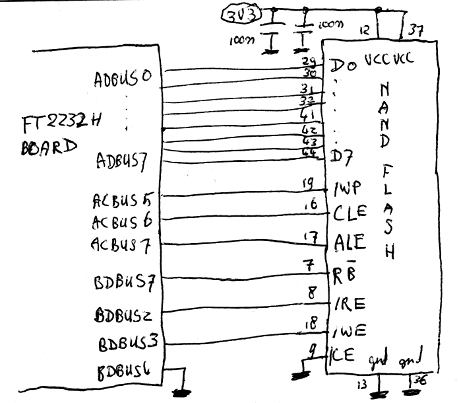 3V3
100n
100n
12
37
VCC VCC
NAND FLASH
FT2232H
BOARD
ADBUS0
ADBUS7
ACBUS5
ACBUS6
ACBUS7
BDBUS7
BDBUS2
BDBUS3
BDBUS6
29 D0
30
31
32
41
42
43
44 D7
19 /WP
16 CLE
17 ALE
7 RB̅
8 /RE
18 /WE
9 /CE
gnd gnd
13
36